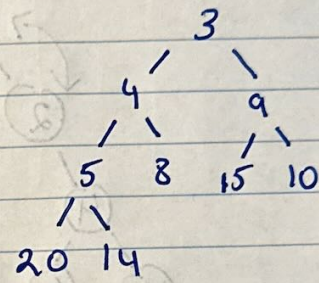 3
4 9
5 8 15 10
20 14